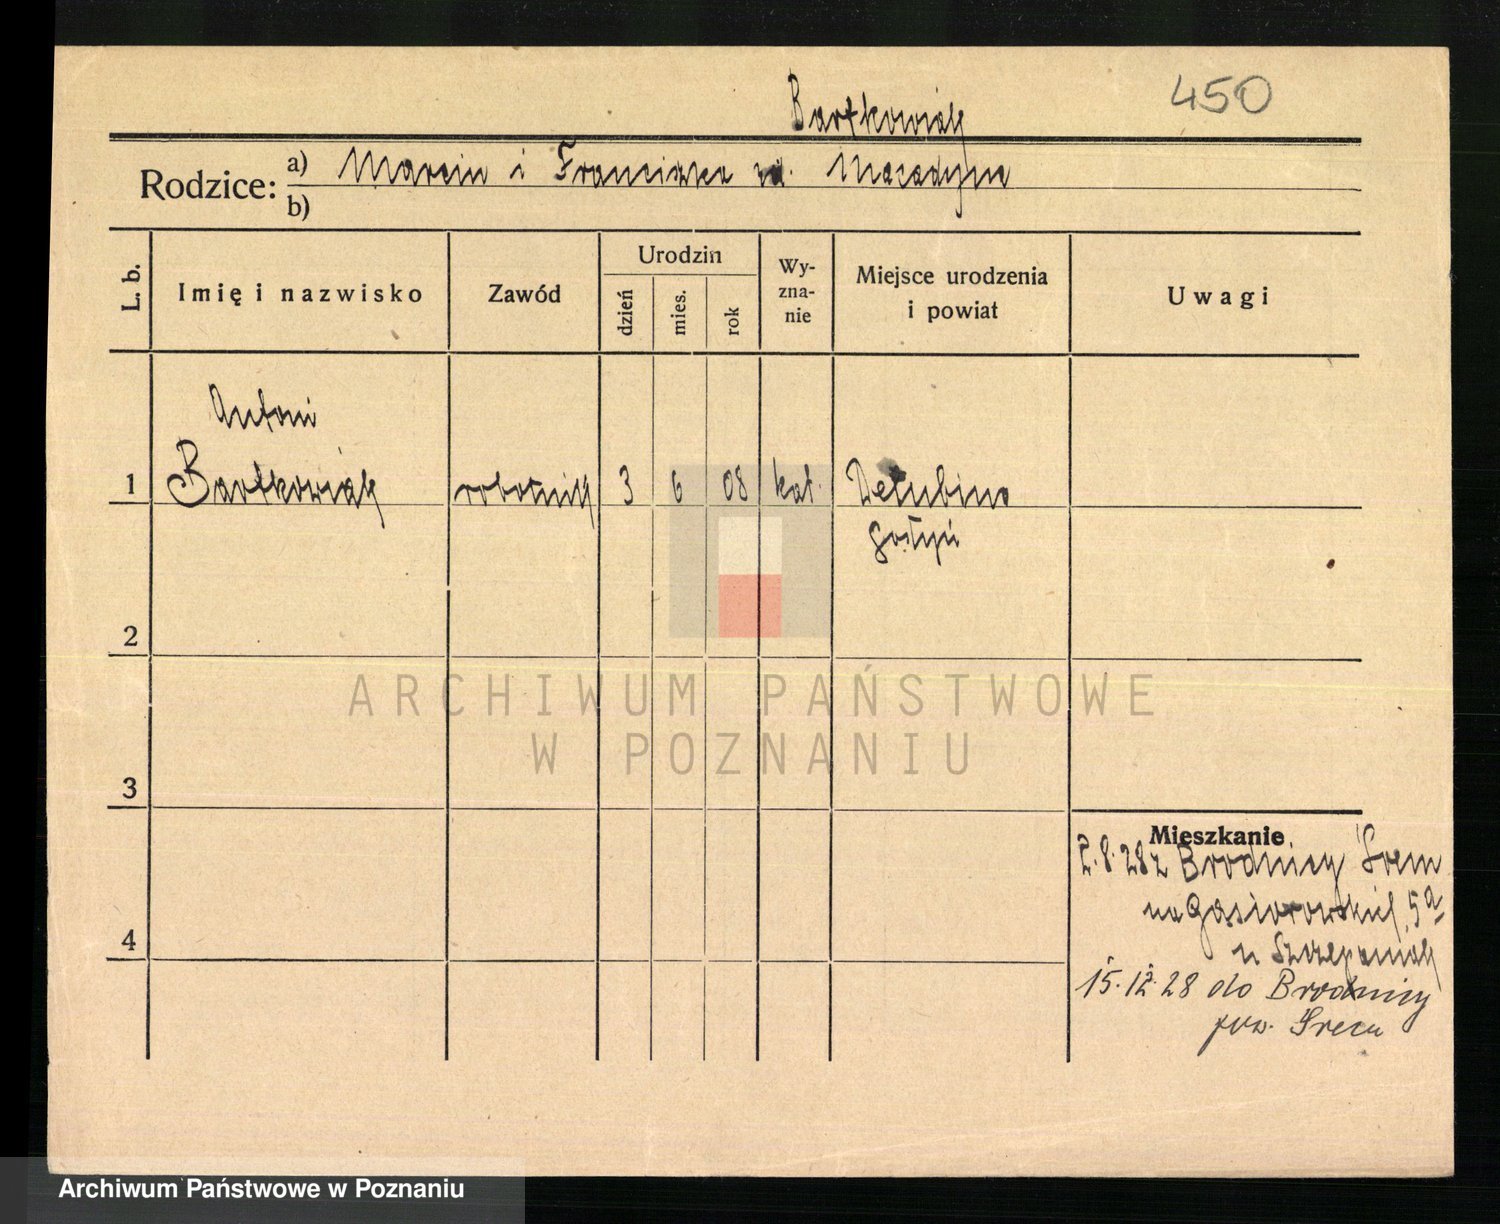 450
Bartkowiak
Rodzice: a) Marcin i Franciszka zd.
b)
L. b.
Imię i nazwisko
Zawód
Urodzin
dzień
mies.
rok
Wy-
zna-
nie
Miejsce urodzenia
i powiat
Uwagi
Antoni
1 Bartkowiak robotnik 3 6 08 kat.
Gostyń
2
ARCHIWUM PAŃSTWOWE
W POZNANIU
3
Mieszkanie
2.8.28 z Brodnicy Śrem
na Gąsiorowskich 5a
u Szczepaniak
4
15.12.28 do Brodnicy
pow. Śrem
Archiwum Państwowe w Poznaniu